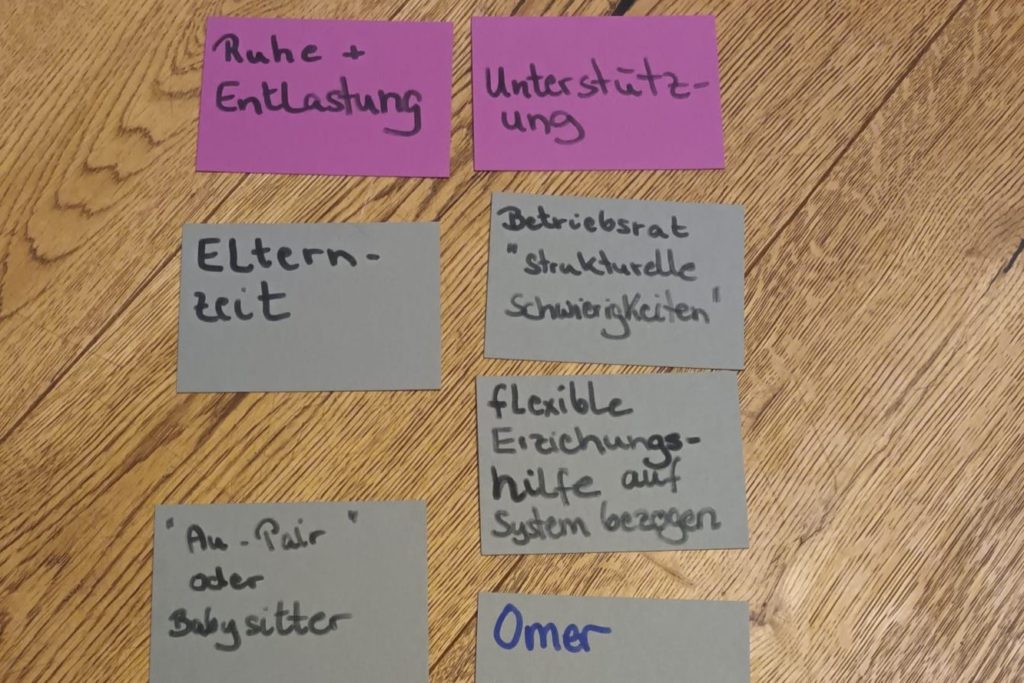 Ruhe +
Entlastung
Unterstütz-
ung
Eltern-
zeit
Betriebsrat
"strukturelle
Schwierigkeiten"
flexible
Erziehungs-
hilfe auf
System bezogen
"Au-Pair"
oder
Babysitter
Omer